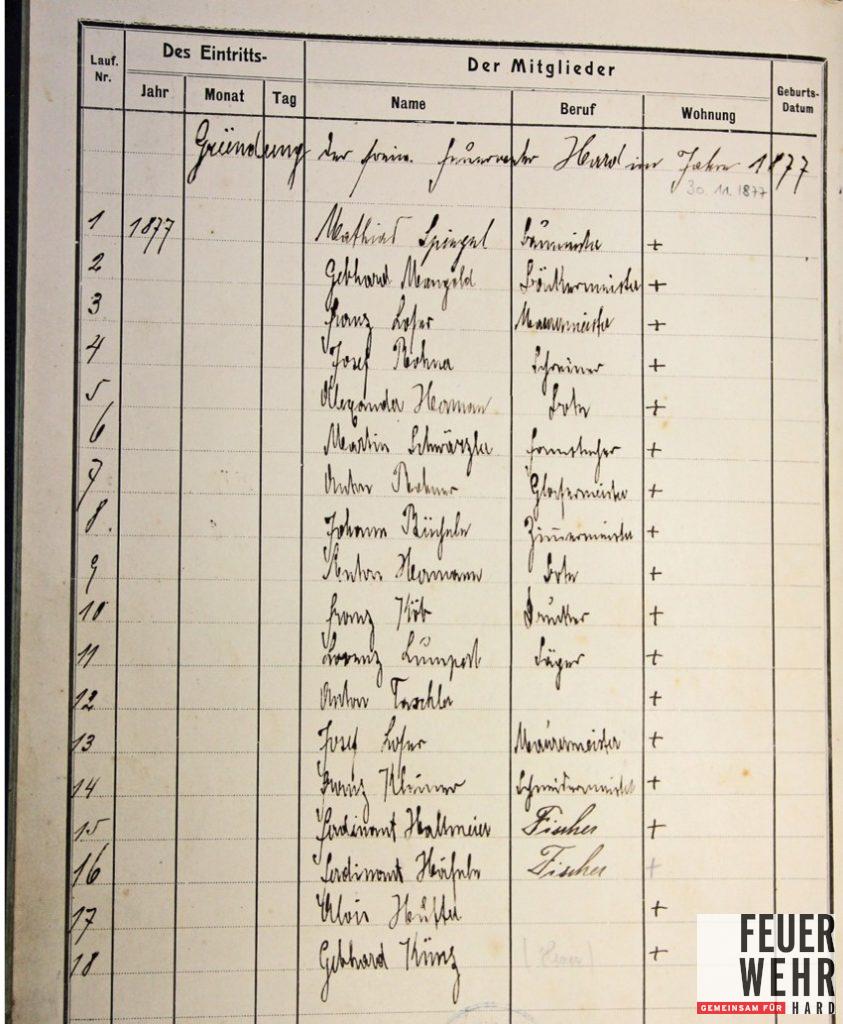 Des Eintritts-
Der Mitglieder
Lauf. Nr.
Jahr Monat Tag Name Beruf Wohnung Geburts-Datum
Gründung der freiw. Feuerwehr Hard im Jahre 1877
30. 11. 1877
1 1877 Mathias Spiegel Baumeister +
2 Gebhard Mangold Bäckermeister +
3 Franz Loser Maurermeister +
4 Josef Rohner Schreiner +
5 Alexander Herman Bote +
6 Martin Schwärzler +
7 Anton Rohner Glasermeister +
8. Johann Büchele Zimmermeister +
9 Anton Hermann Bote +
10 Franz Köb Drucker +
11 Lorenz Lumpert Säger +
12 Anton Taschler +
13 Josef Loser Maurermeister +
14 Franz Kleiner Schneidermeister +
15 Ferdinant Haltmeier Fischer +
16 Ferdinant Häfele Fischer +
17 Alois Hutter +
18 Gebhard Künz +
FEUER
WEHR
GEMEINSAM FÜR HARD